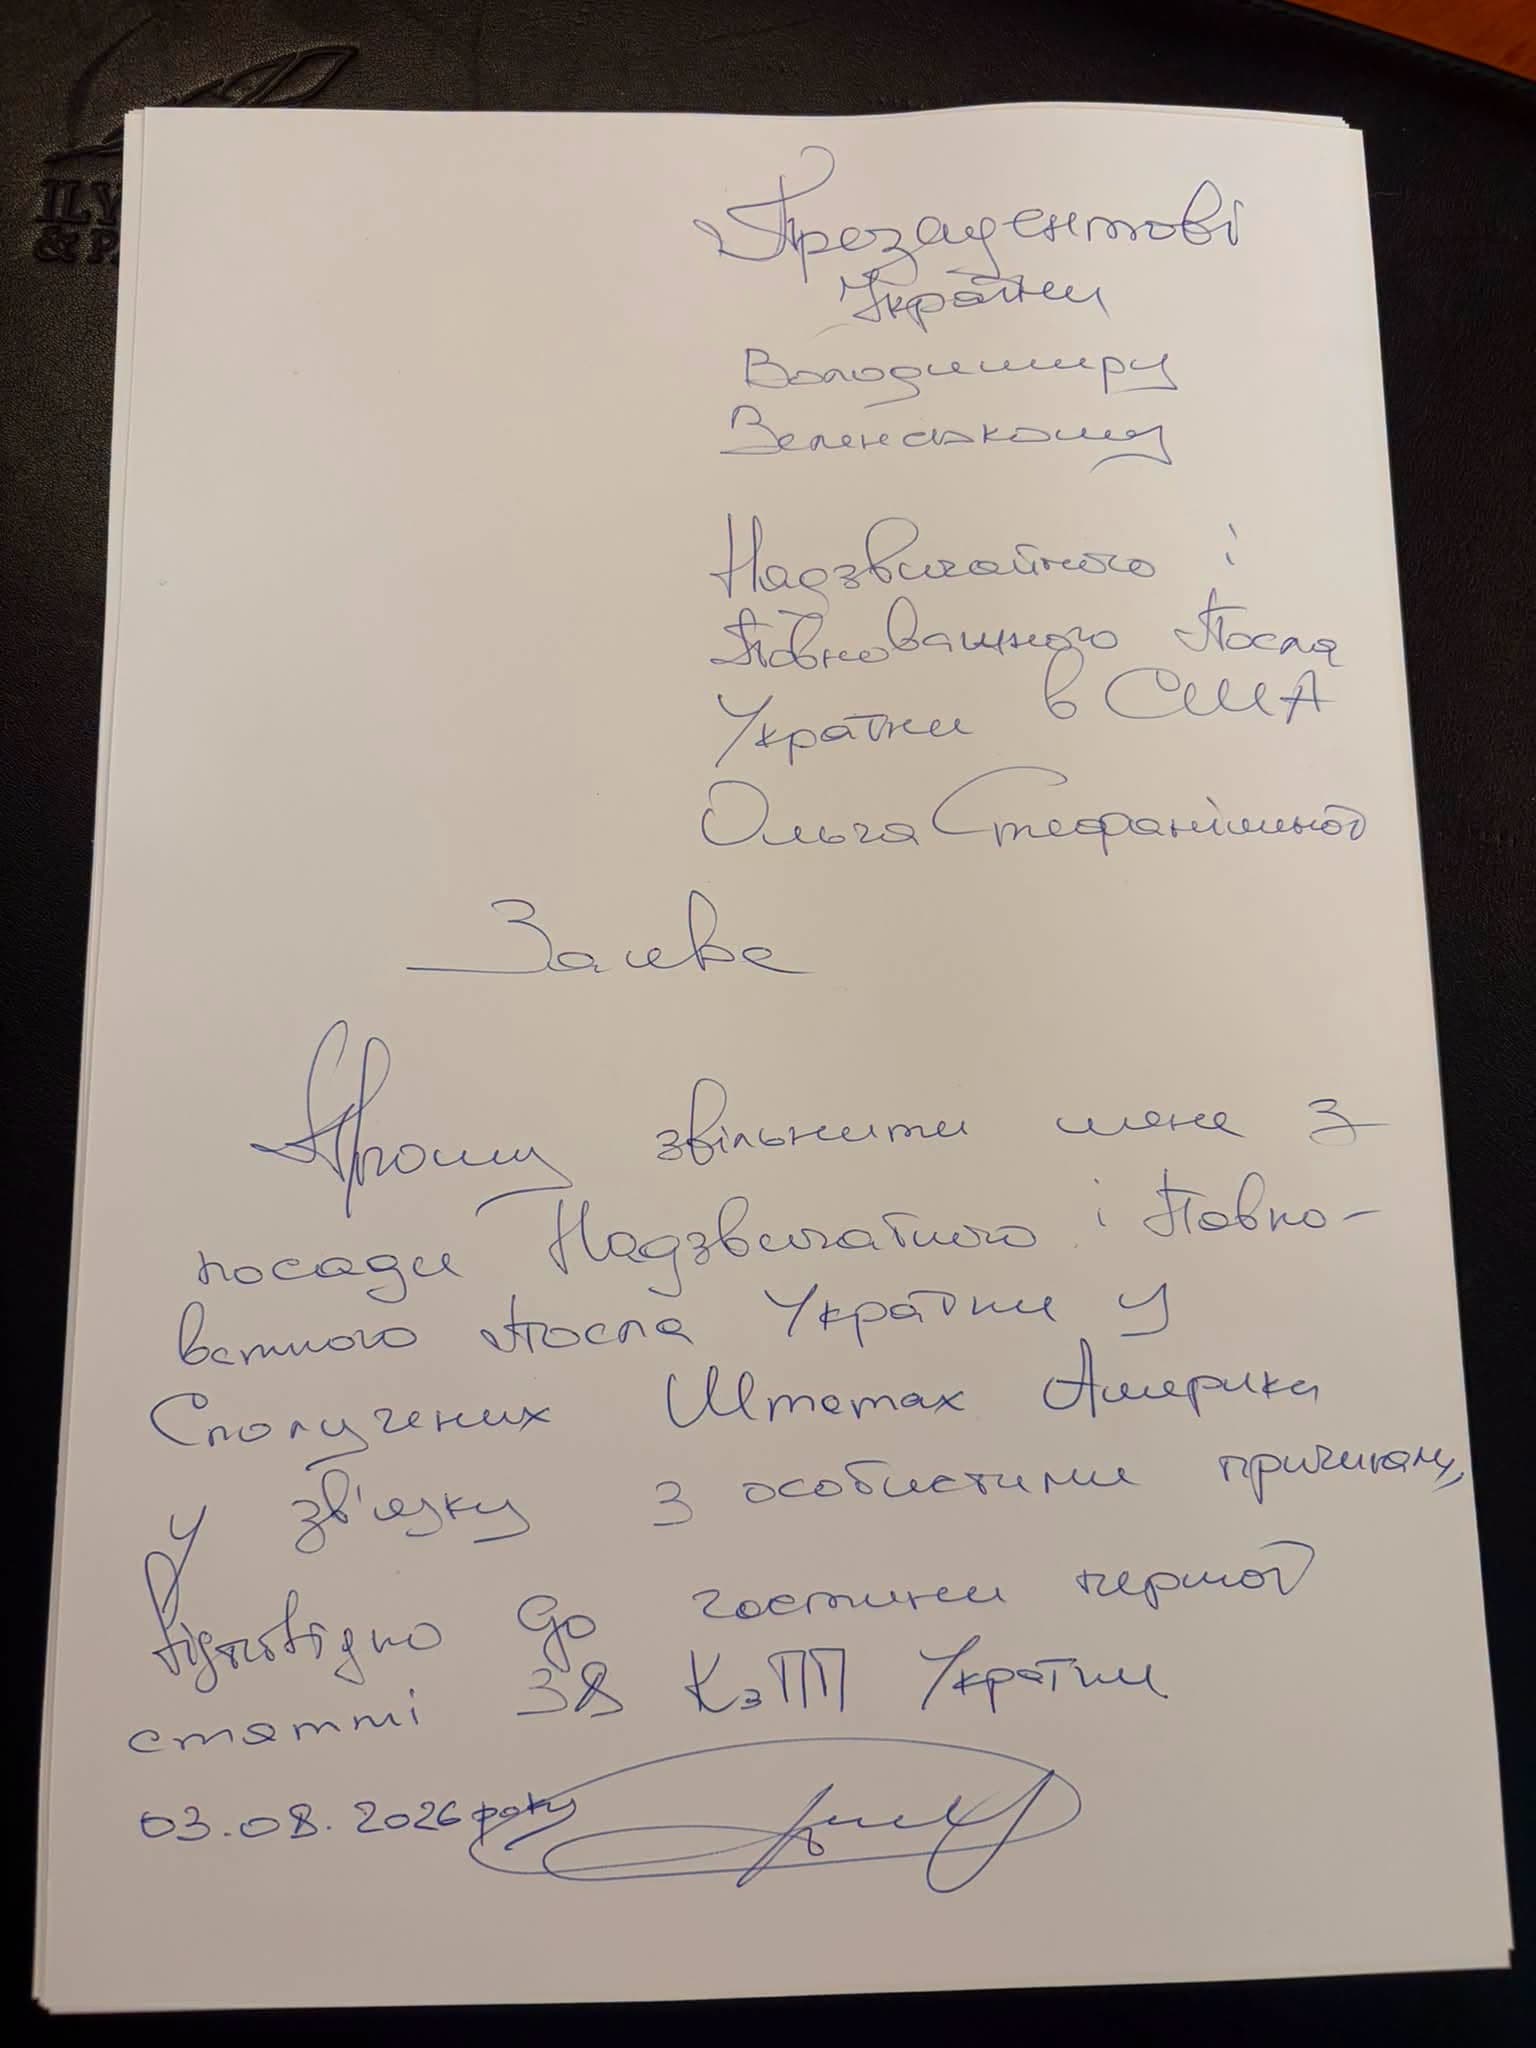 Президентові
України
Володимиру
Зеленському
Надзвичайного і
Повноважного Посла
України в США
Ольга Стефанішиної
Заява
Прошу звільнити мене з
посади Надзвичайного і Повно-
важного Посла України у
Сполучених Штатах Америки
у зв'язку з особистими причинами,
відповідно до частини першої
статті 38 КзПП України
03.08.2026 року